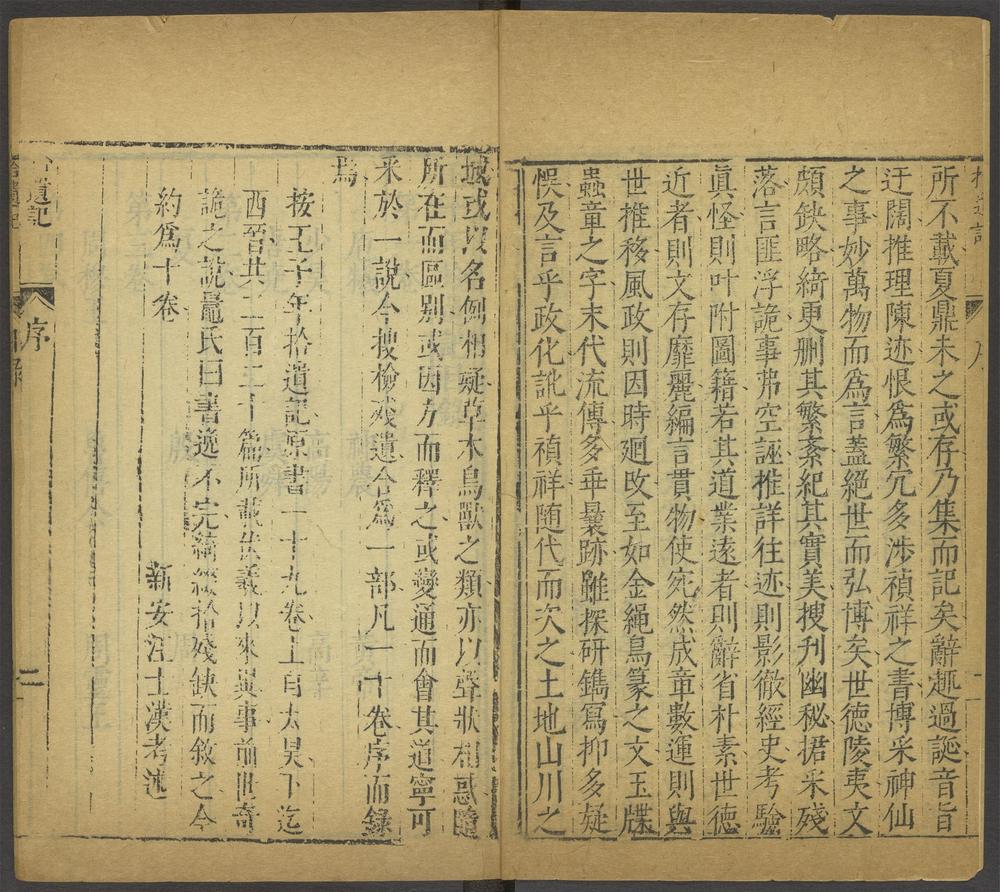 所不載夏鼎未之或存乃集而記矣辭趣過誕音旨
迂闊推理陳迹恨爲繁冗多渉禎祥之書博采神仙
之事妙萬物而爲言蓋絕世而弘博矣世德陵夷文
頗缺略綺更刪其繁紊紀其實美搜刊幽秘捃采殘
落言匪浮詭事弗空誣推詳往迹則影徹經史考驗
眞怪則叶附圖籍若其道業遠者則辭省朴素世德
近者則文存靡麗編言貫物使宛然成章數運則與
世推移風政則因時廻改至如金繩鳥篆之文玉牒
蟲章之字末代流傳多乖曩跡雖探研鐫寫抑多疑
悞及言乎政化訛乎禎祥随代而次之土地山川之
域或以名例相疑草木鳥獸之類亦以聲狀相惑隨
所在而區别或因方而釋之或變通而會其道寧可
采於一說今搜檢殘遺合爲一部凡一十卷序而錄
焉
按王子年拾遺記原書一十九卷上自太昊下迄
西晉共二百二十篇所載伏羲以來異事前世奇
詭之說鼂氏曰書逸不完綺綴拾殘缺而敘之今
約爲十卷
新安汪士漢考述
拾遺記
序
二